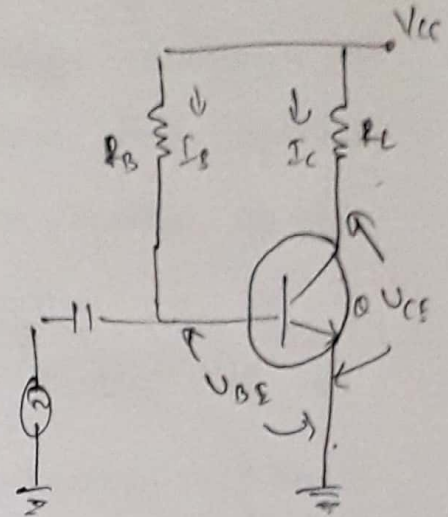 VCC
RB
IB
IC
RL
Q
VCE
VBE